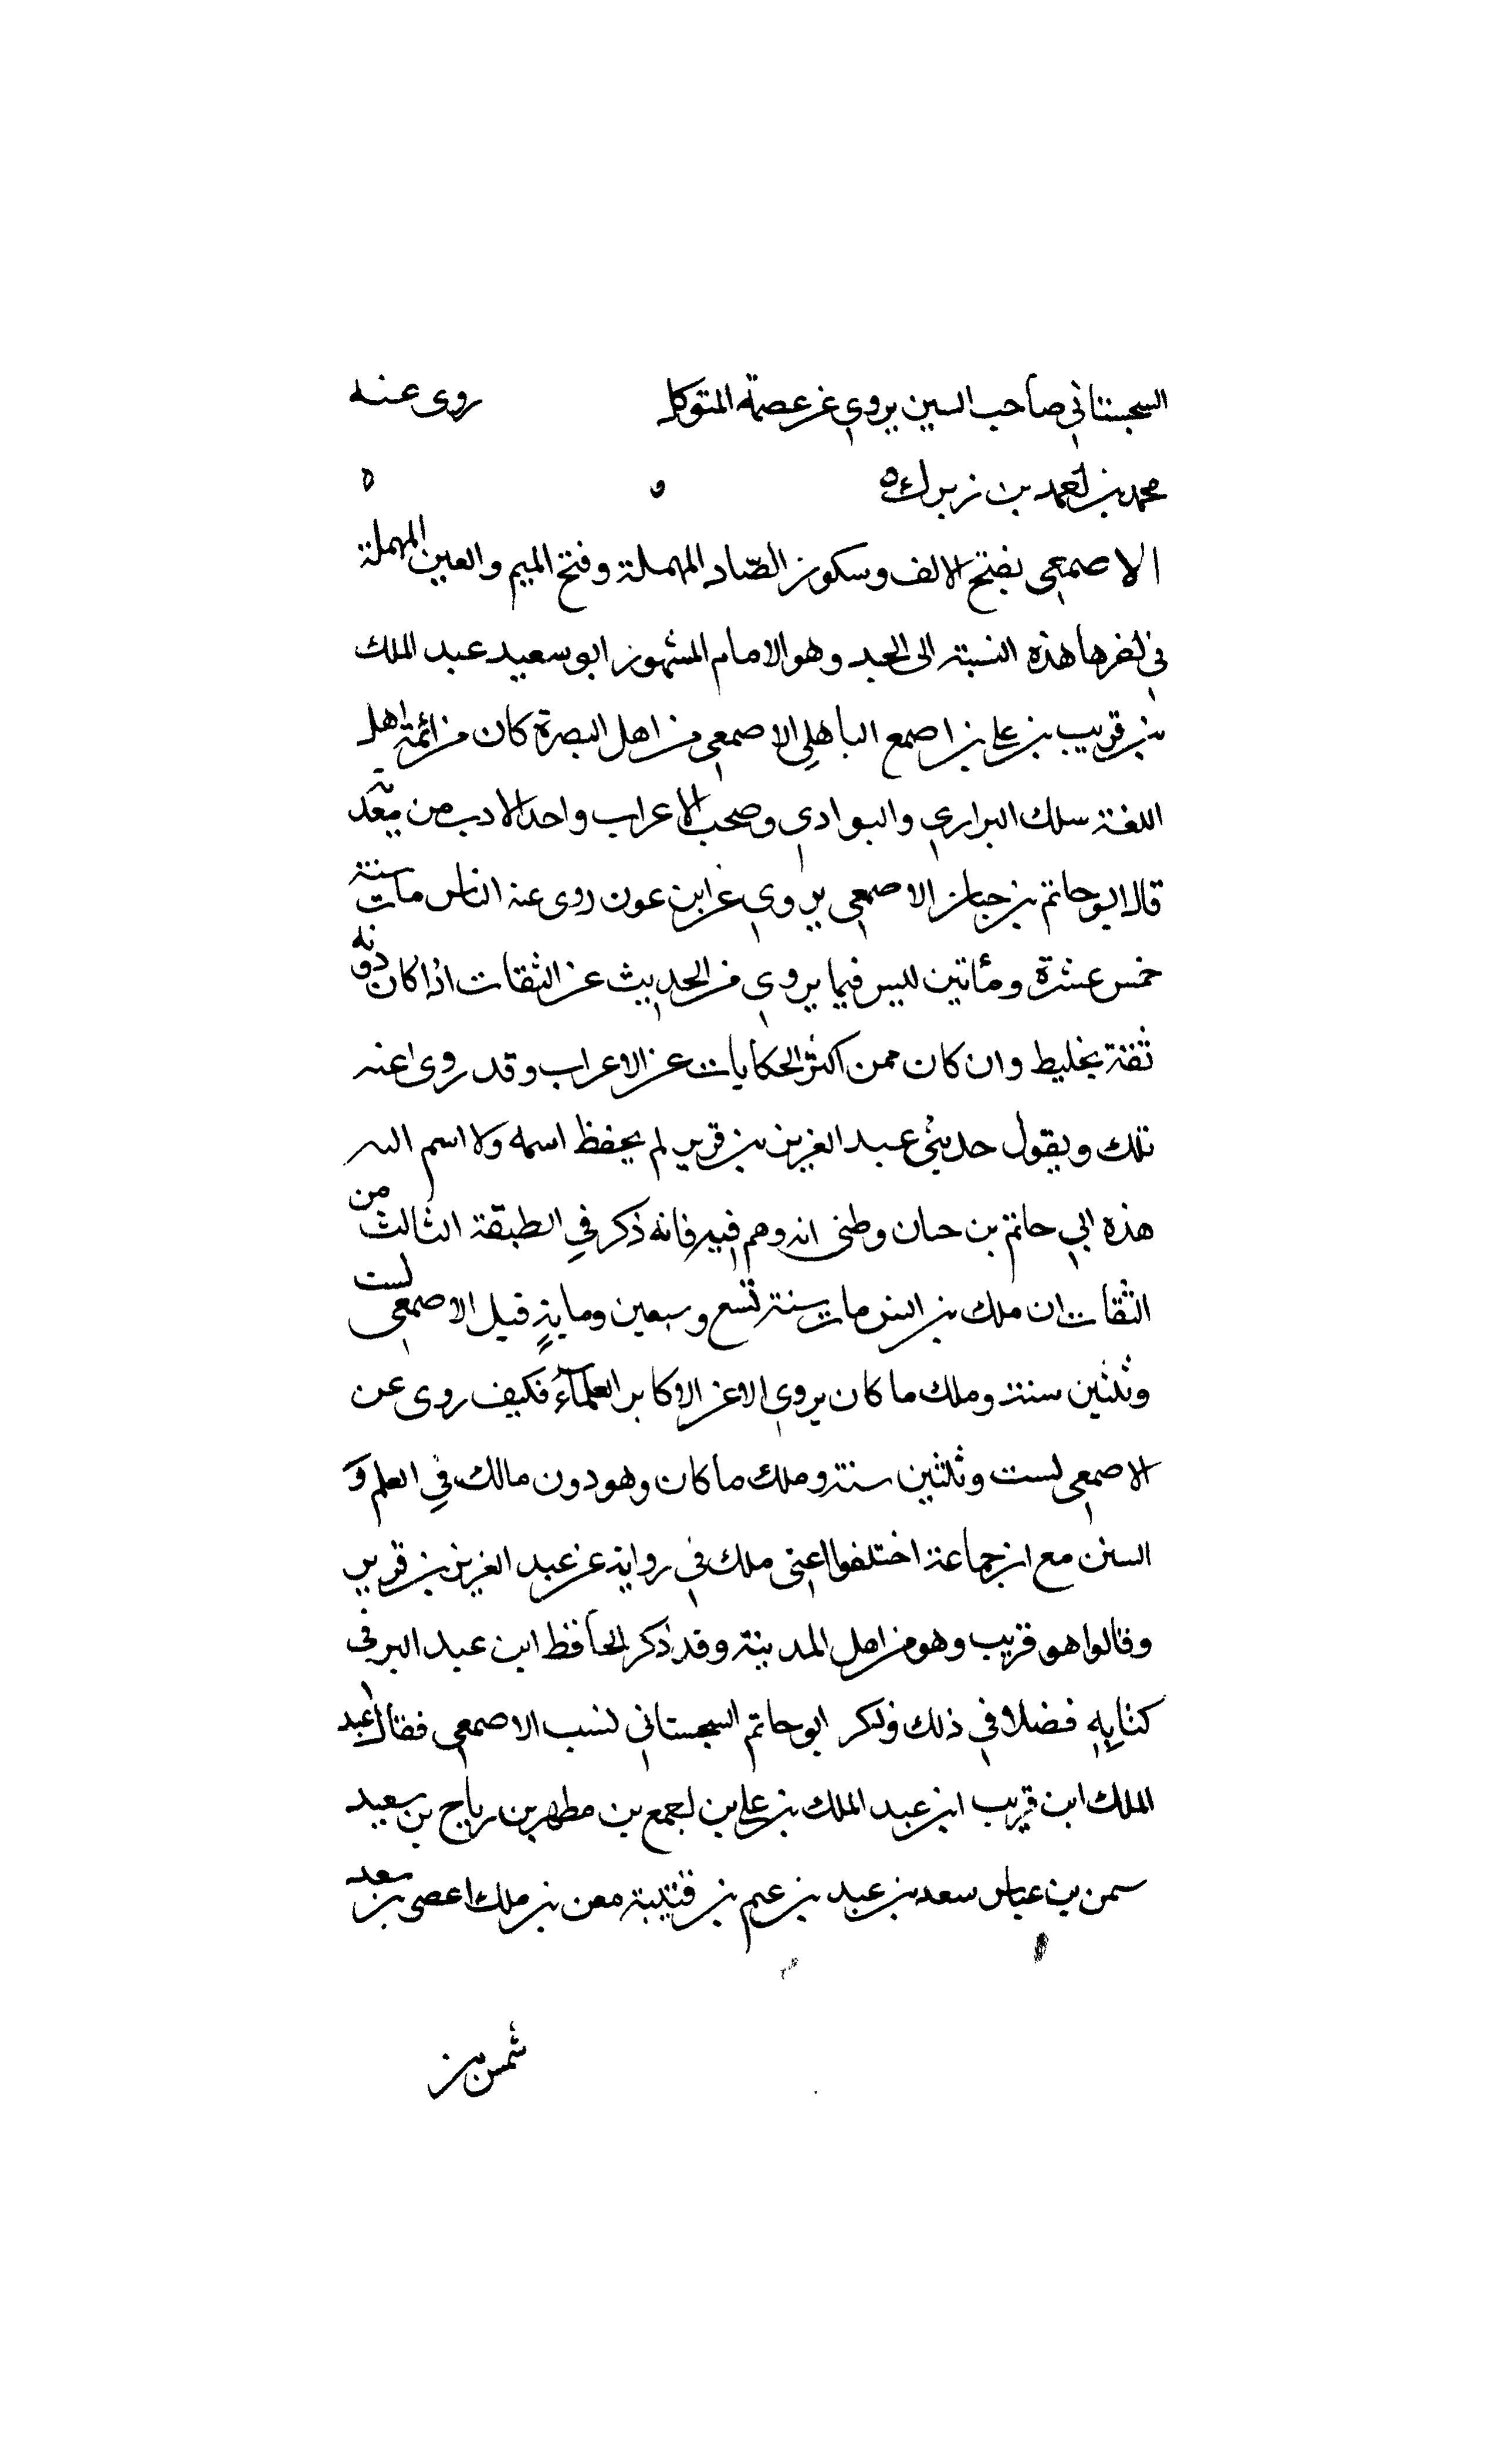 السجستاني صاحب السير يروي عن عصمة المتوكل روى عنه
محمد بن احمد بن زيرك
الاصمعي بفتح الالف وسكون الصّاد المهملة وفتح الميم والعين المهملة
في اخرها هذه النسبة الى الجد وهو الامام المشهور ابو سعيد عبد الملك
بن قريب بن علي بن اصمع الباهلي الاصمعي من اهل البصرة كان من ائمة اهل
اللغة سلك البراري والبوادي وصحب الاعراب واخذ الادب من
قال ابو حاتم بن حبان الاصمعي يروي عن ابن عون روى عنه الناس مات سنة
خمس عشرة ومأتين ليس فيما يروي من الحديث عن الثقات اذا كان دونه
ثقة بخليط وان كان ممن اكثر الحكايات عن الاعراب وقد روى عنه
ملك ويقول حدثني عبد العزيز بن قرير لم يحفظ اسمه ولا اسم ابيه
هذه ابي حاتم بن حبان وظني انه وهم فيه فانه ذكر في الطبقة الثالث من
الثقات ان ملك بن انس مات سنة تسع وسبعين وماية قبل الاصمعي لست
وثلثين سنة وملك ما كان يروي الا عن الاكابر العلمآء فكيف روى عن
الاصمعي لست وثلثين سنة وملك ما كان وهو دون مالك في العلم و
السن مع ان جماعة اختلفوا اعني ملك في رواية عن عبد العزيز بن قرير
وقالوا هو قريب وهو من اهل المدينة وقد ذكر الحافظ ابن عبد البر في
كتابه فضلا في ذلك وذكر ابو حاتم السجستاني نسب الاصمعي فقال عبد
الملك ابن قريب ابن عبد الملك بن علي بن اصمع بن مطهر بن رياح بن سعيد
سمن بن عباس سعد بن عبد بن عم بن قتيبة معن بن ملك اعصى بن سعد
شمس بن